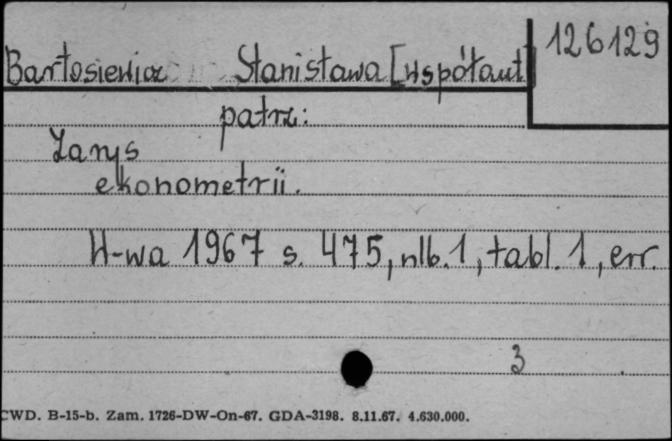 126129
Bartosiewicz Stanisława [współaut]
patrz:
Zarys
ekonometrii.
W-wa 1967 s. 475, nlb. 1, tabl. 1, err.
3
CWD. B-15-b. Zam. 1726-DW-On-67. GDA-3198. 8.11.67. 4.630.000.